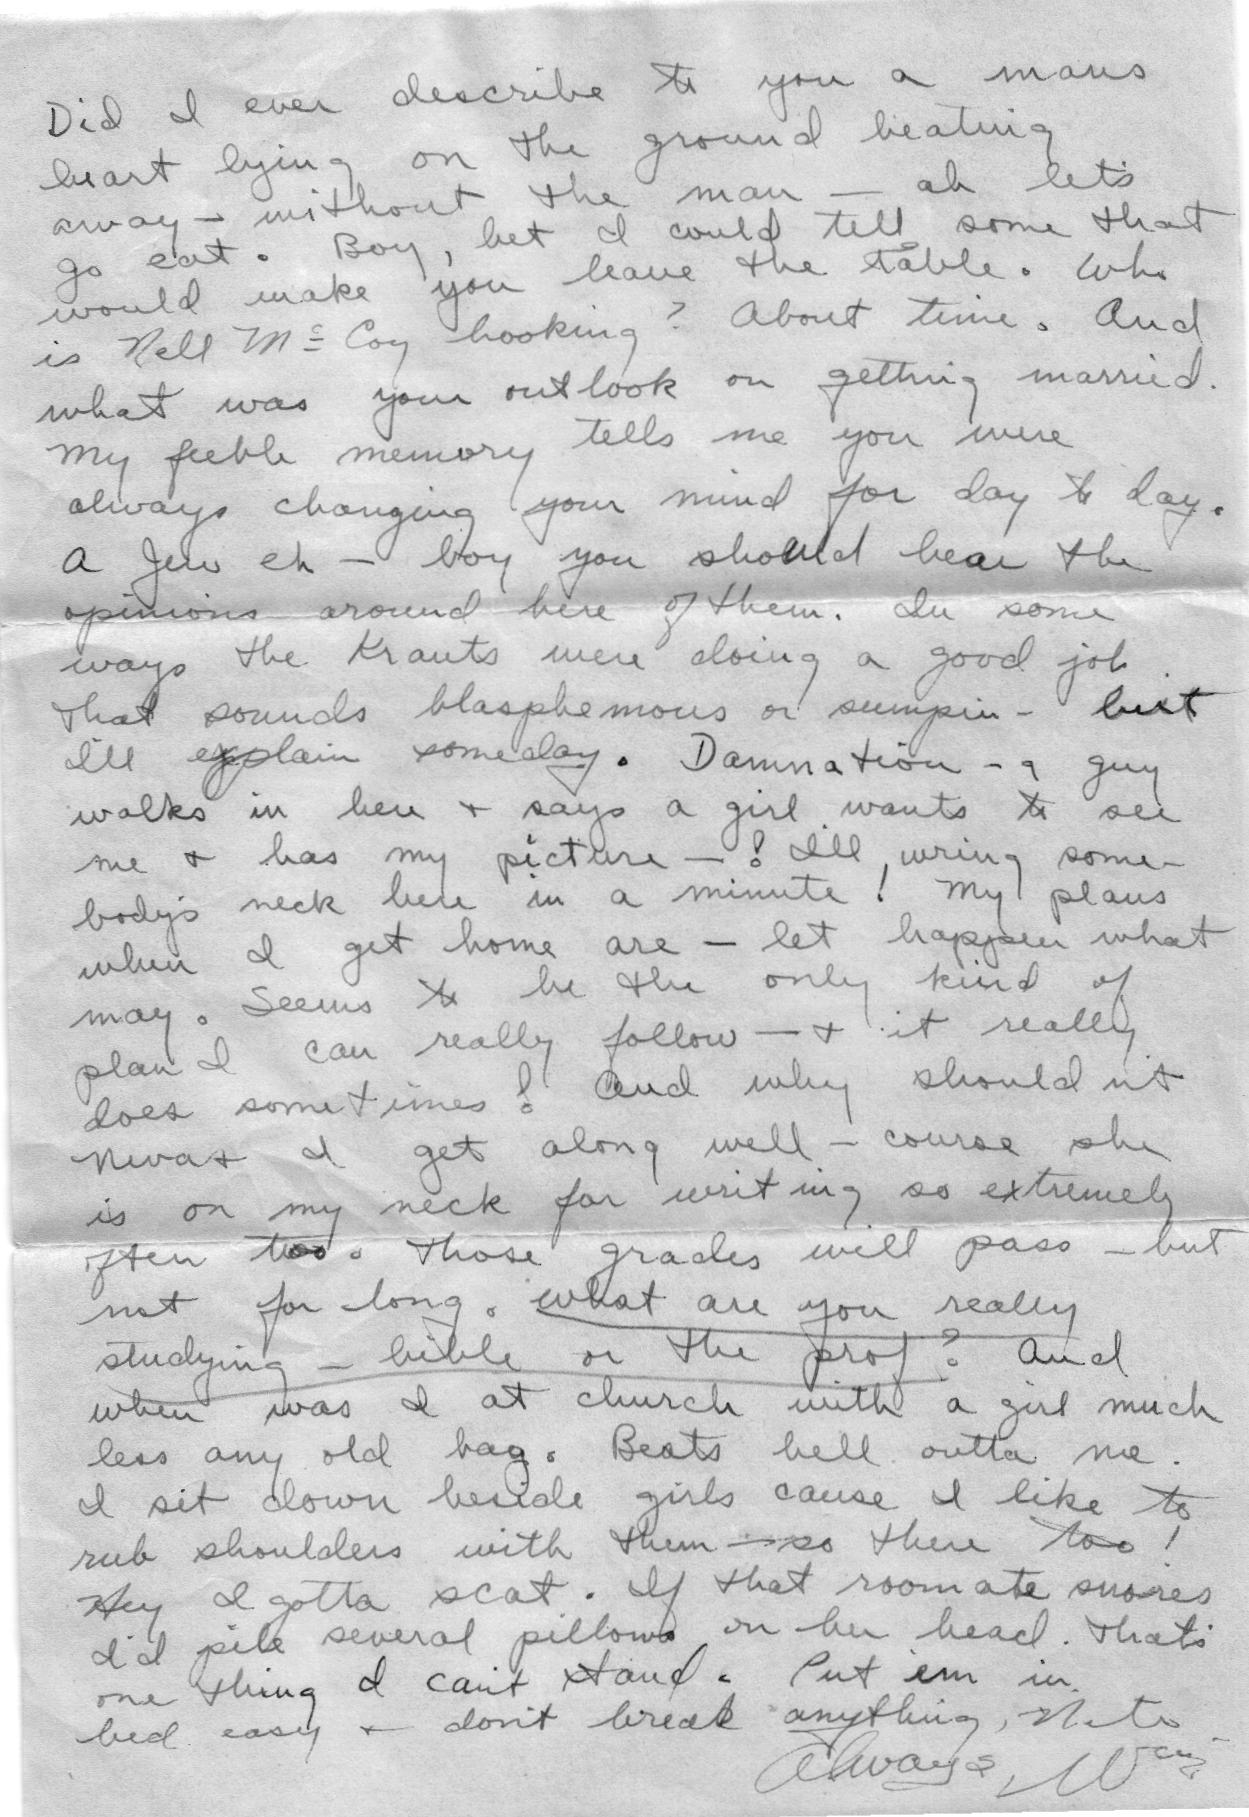 Did I ever describe to you a mans
heart lying on the ground beating
away – without the man – ah let's
go eat. Boy, bet I could tell some that
would make you leave the table. Who
is Nell Mc Coy hooking? About time. And
what was your outlook on getting married.
My feeble memory tells me you were
always changing your mind for day to day.
A Jew eh – boy you should hear the
opinions around here of them. In some
ways the Krauts were doing a good job
that sounds blasphemous or sumpin – but
I'll explain someday. Damnation – a guy
walks in here + says a girl wants to see
me + has my picture – ! I'll wring some-
body's neck here in a minute! My plans
when I get home are – let happen what
may. Seems to be the only kind of
plan I can really follow – + it really
does sometimes! And why shouldn't
Neva + I get along well – course she
is on my neck for writing so extremely
often too. Those grades will pass – but
not for long. What are you really
studying – bible or the prof? And
when was I at church with a girl much
less any old bag. Beats hell outta me.
I sit down beside girls cause I like to
rub shoulders with them – so there too!
Hey I gotta scat. If that roomate snores
I'd pile several pillows on her head. That's
one thing I can't stand. Put em in
bed easy + don't break anything,
Always,